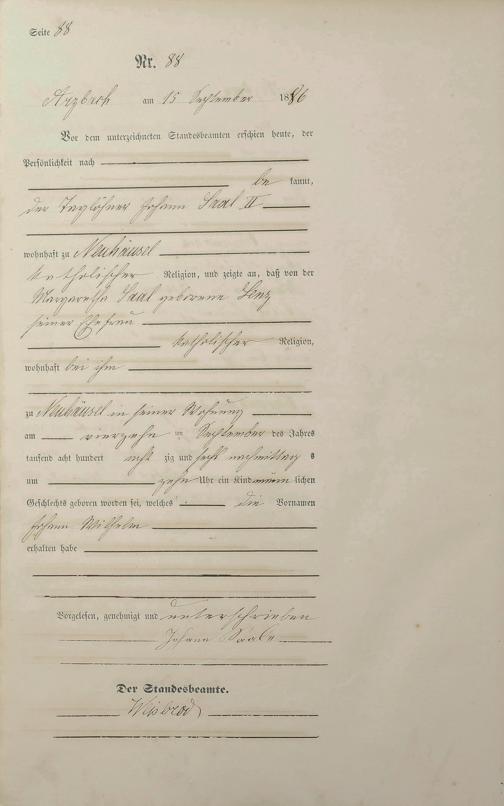 Seite 88
Nr. 88
Arzbach am 15 September 1886
Vor dem unterzeichneten Standesbeamten erschien heute, der
Persönlichkeit nach
be kannt,
der Taglöhner Johann Saal II
wohnhaft zu Neuhäusel
katholischer Religion, und zeigte an, daß von der
Margaretha Saal geborene
seiner Ehefrau
katholischer Religion,
wohnhaft bei ihm
zu Neuhäusel in seiner Wohnung
am vierzehn September des Jahres
tausend acht hundert acht zig und sechs nachmittag s
um zehn Uhr ein Kind männ lichen
Geschlechts geboren worden sei, welches die Vornamen
Johann Wilhelm
erhalten habe
Vorgelesen, genehmigt und unterschrieben
Johann
Der Standesbeamte.